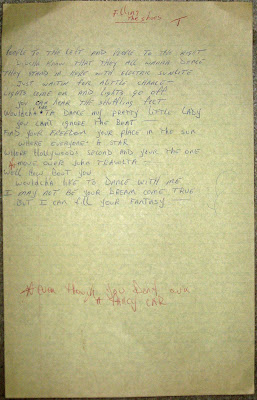 Filling
the shoes
PEOPLE TO THE LEFT AND PEOPLE TO THE RIGHT
I KNOW THAT THEY ALL WANNA DANCE
THEY STAND IN LINE WITH ELECTRIC SUNLITE
JUST WAITIN FOR A CHANCE
LIGHTS COME ON AND LIGHTS GO OFF
YOU CAN HEAR THE SHUFFLING FEET
WOULDCHA DANCE MY PRETTY LITTLE LADY
YOU CAN'T IGNORE THE BEAT
FIND YOUR FREEDOM YOUR PLACE IN THE SUN
WHERE EVERYONE'S A STAR
WHERE HOLLYWOODS SECOND AND YOUR THE ONE
MOVE OVER JOHN TRAVOLTA
WELL HOW BOUT YOU
WOULDCHA LIKE TO DANCE WITH ME
I MAY NOT BE YOUR DREAM COME TRUE
BUT I CAN FILL YOUR FANTASY
EVEN THOUGH YOU DON'T OWN
A FANCY CAR